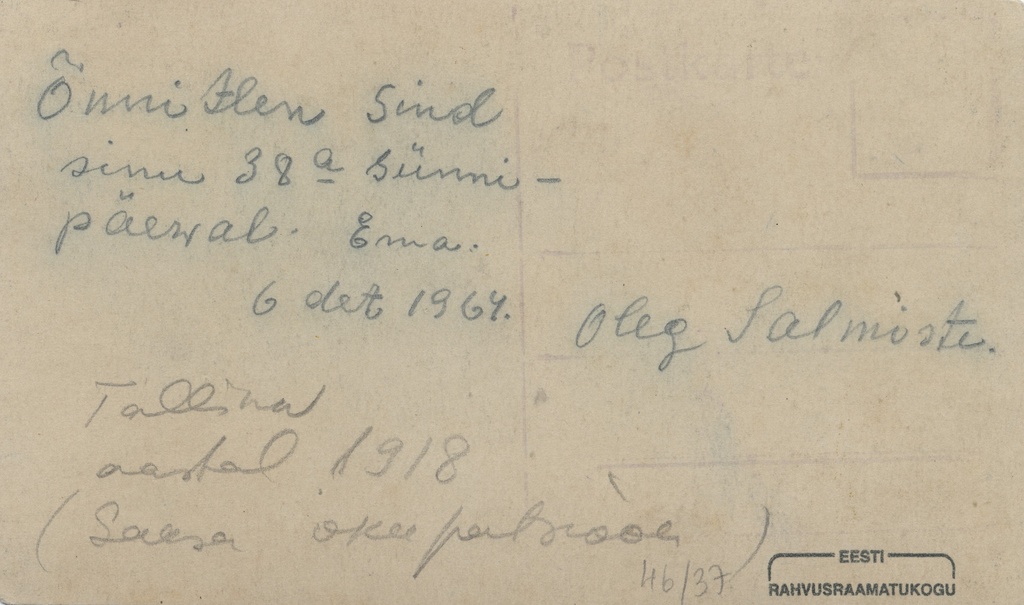 Õnnitlen Sind
sinu 38 a sünni-
päewal. Ema.
6 det 1964.
Oleg Salmiste.
Tallinn
aastal 1918
(Saksa okupatsioon)
46/37
EESTI
RAHVUSRAAMATUKOGU